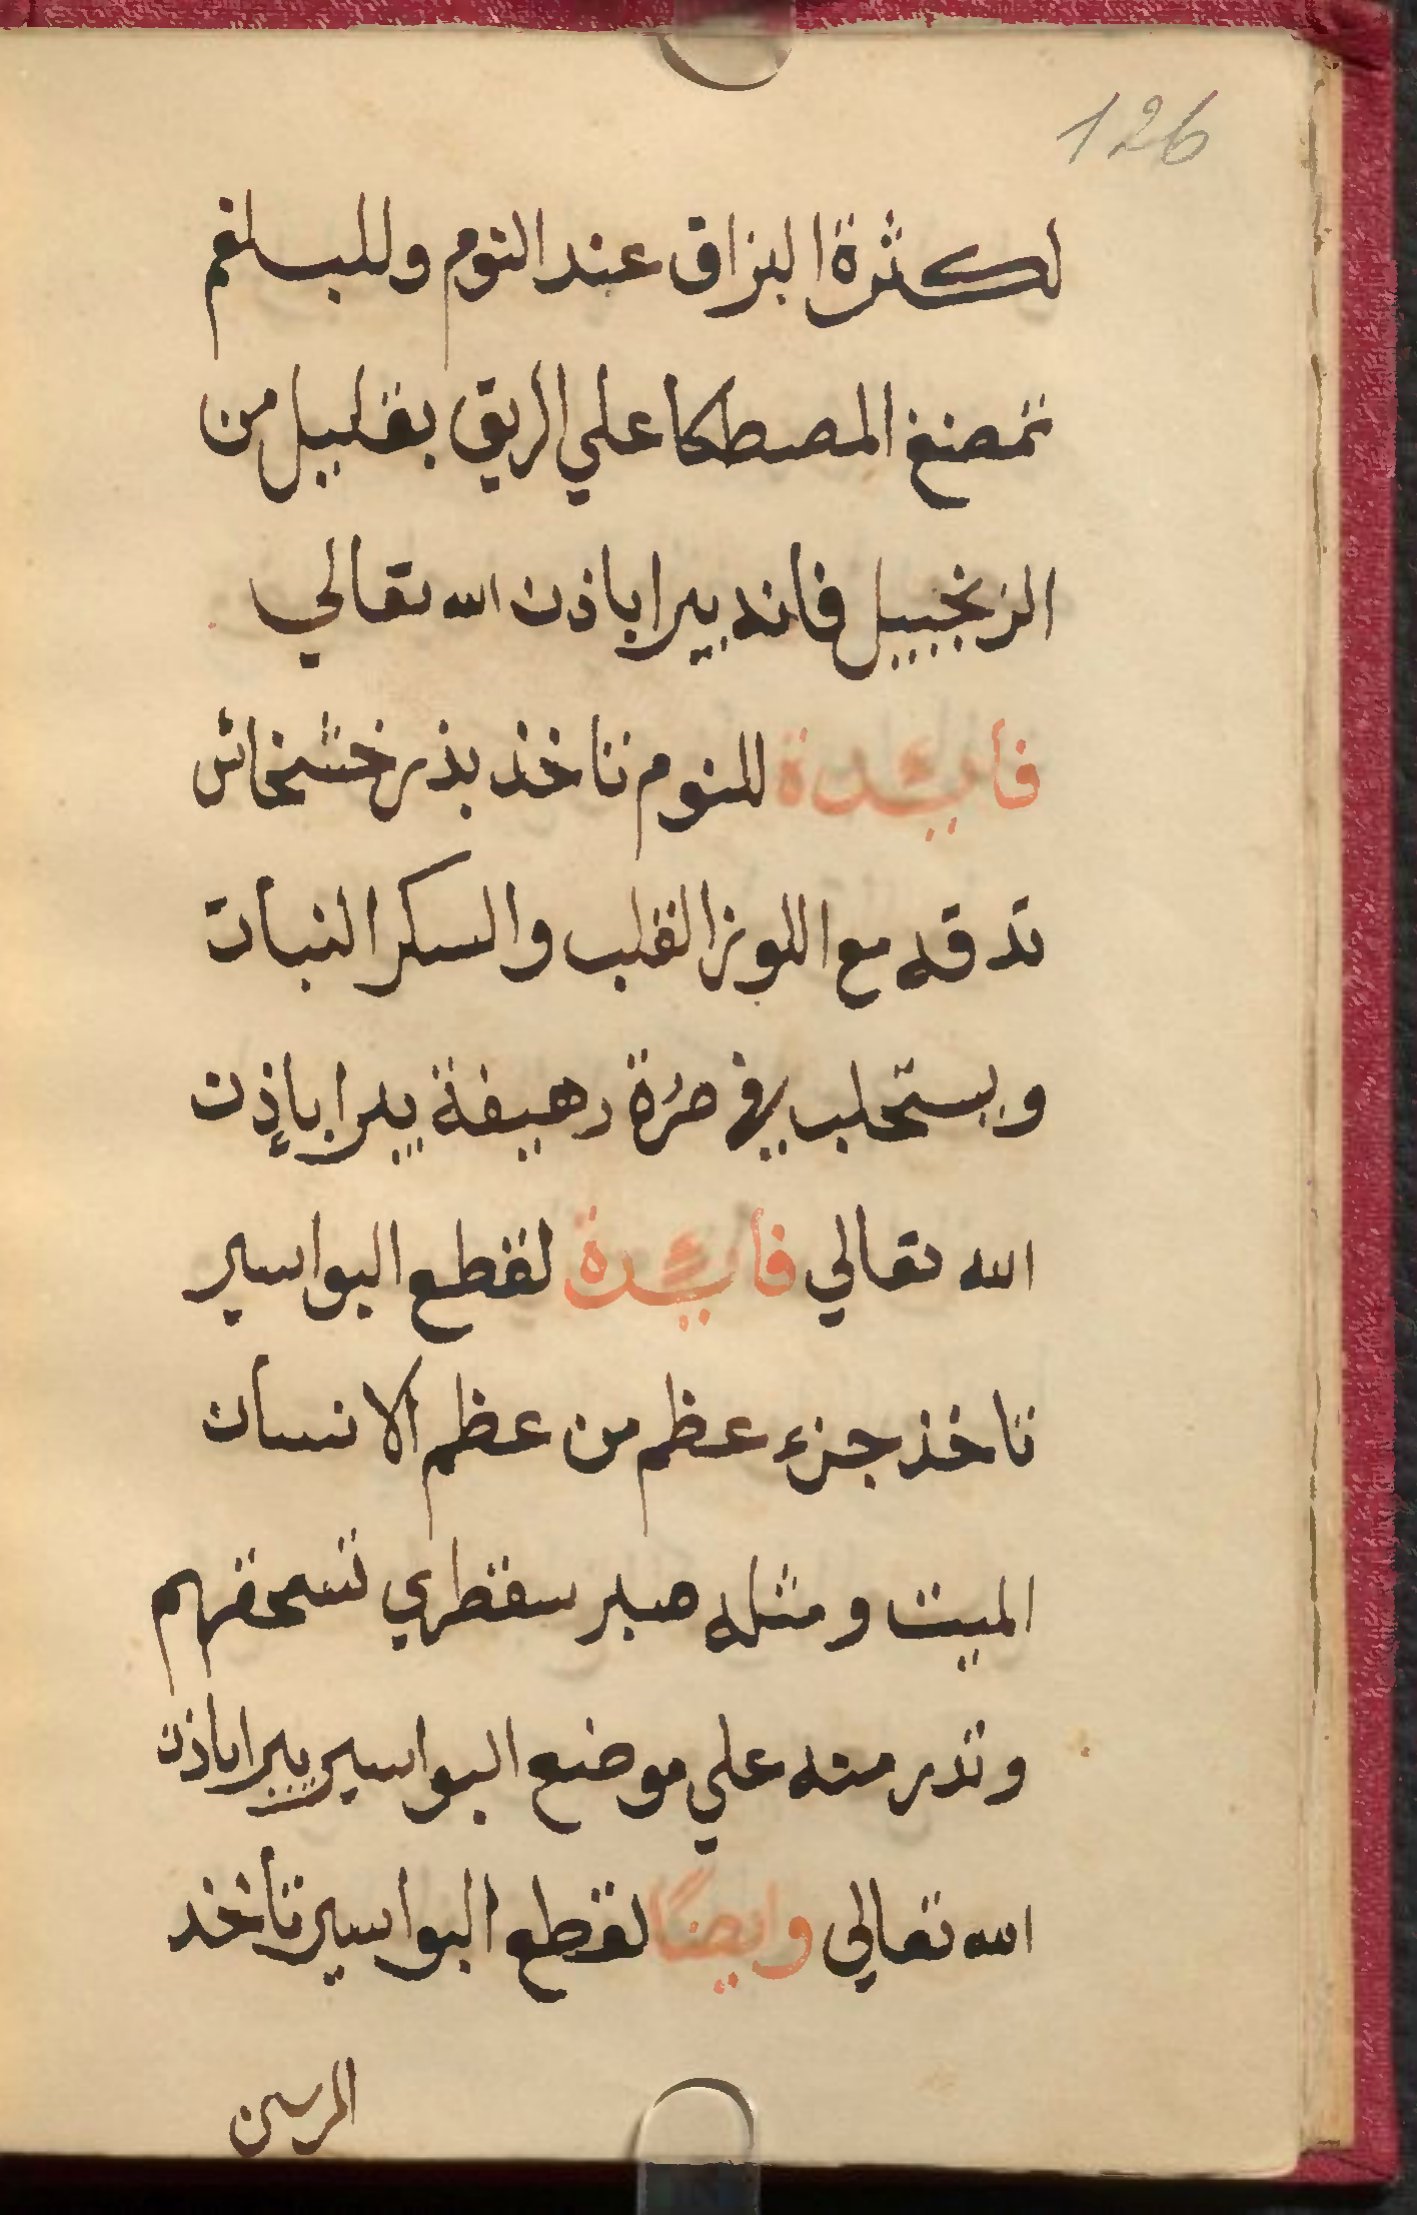 126
لكثرة البزاق عند النوم وللبلغم
تمضغ المصطكا علي الريق بقليل من
الزنجبيل فانه يبرا باذن الله تعالي
فايدة للنوم تاخذ بذر خشخاش
تدقه مع اللوز القلب والسكر النبات
ويستحلب في خرقة رهيفة يبرا بإذن
الله تعالي فايدة لقطع البواسير
تاخذ جزء عظم من عظم الانسان
الميت ومثله صبر سقطري تسحقهم
وتذر منه علي موضع البواسير يبرا باذن
الله تعالي وايضًا لقطع البواسير تأخذ
المرسين